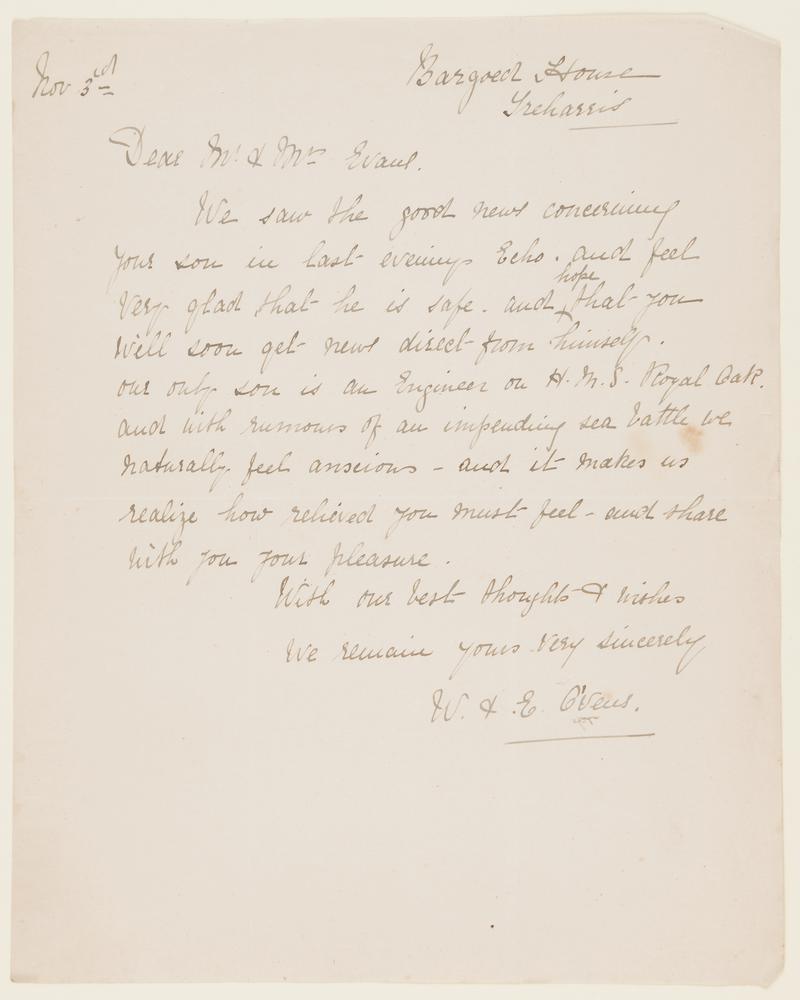 Nov 3rd
Bargoed House
Treharris
Dear Mr & Mrs Evans.
We saw the good news concerning
your son in last evenings Echo. and feel
very glad that he is safe. and hope that you
will soon get news direct from himself.
our only son is an Engineer on H.M.S. Royal Oak.
and with rumours of an impending sea battle we
naturally feel anxious - and it makes us
realize how relieved you must feel - and share
with you your pleasure.
With our best thoughts & wishes
We remain yours very sincerely
W. & E.